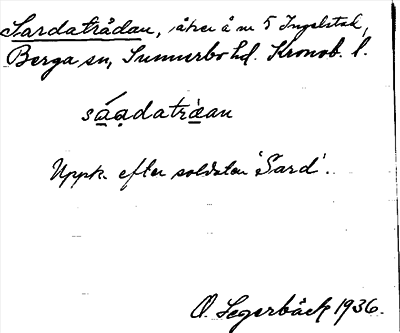 Sardatrådan, åker å nr 5 Ingelstad,
Berga sn, Sunnerbo hd. Kronob. l.
sá̱ạdatrà̱an
Uppk. efter soldaten 'Sard'.
O. Segerbäck 1936.